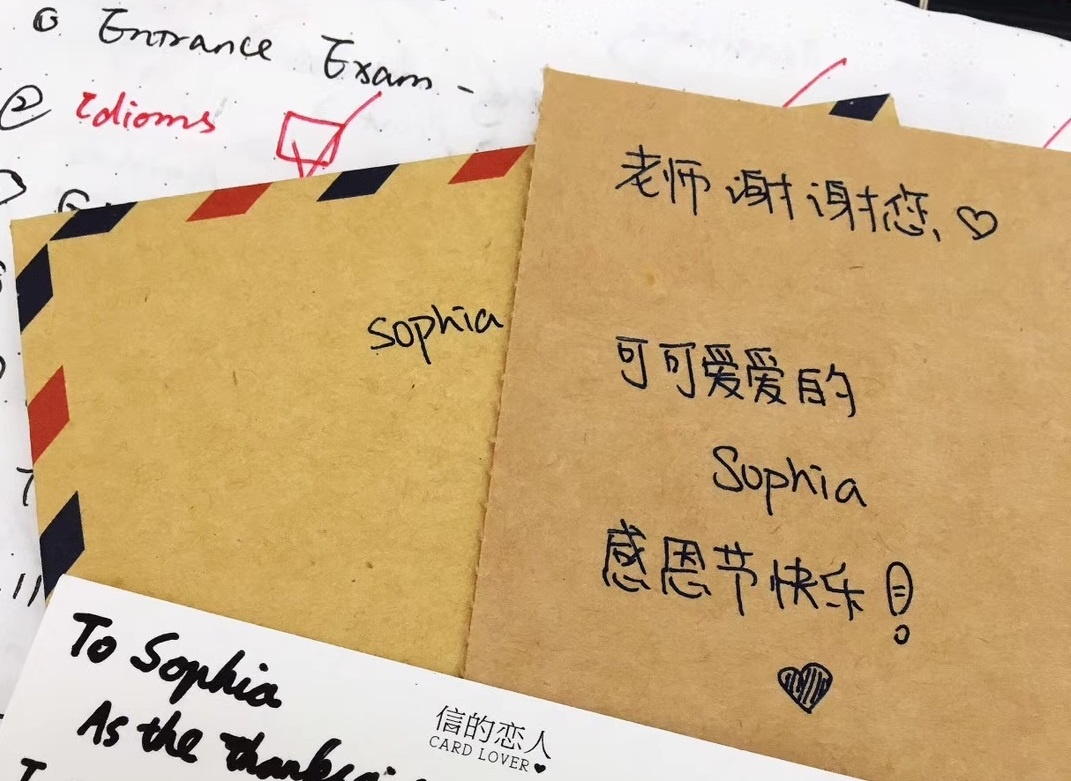 ① Entrance Exam -
② Idioms
sophia
老师谢谢您、♡
可可爱爱的
Sophia
感恩节快乐!
To Sophia
As the thanksgi
信的恋人
CARD LOVER♥